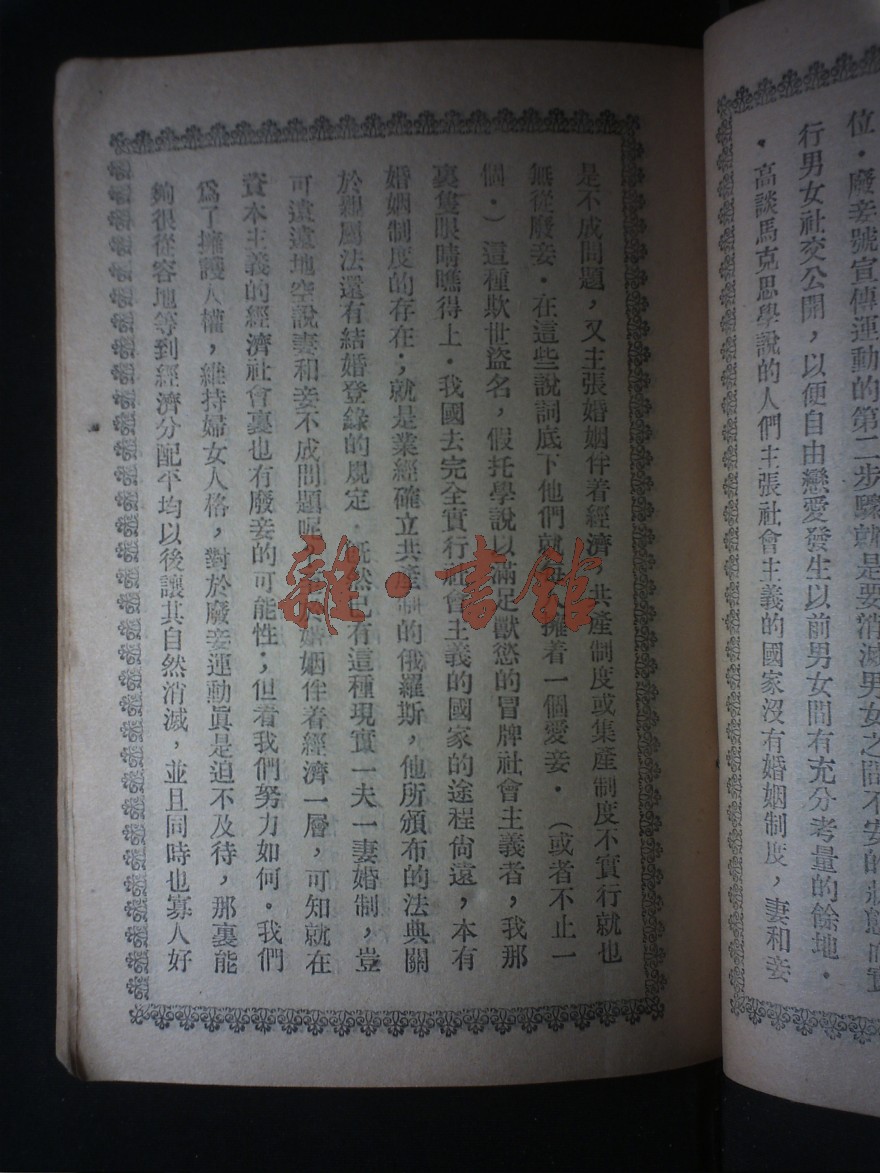 位・廢妾號宣傳運動的第二步驟就是要消滅男女之間不安的狀態而實
行男女社交公開，以便自由戀愛發生以前男女間有充分考量的餘地・
・高談馬克思學說的人們主張社會主義的國家沒有婚姻制度，妻和妾
是不成問題，又主張婚姻伴着經濟，共產制度或集產制度不實行就也
無從廢妾・在這些說詞底下他們就每擁着一個愛妾・（或者不止一
個・）這種欺世盜名，假托學說以滿足獸慾的冒牌社會主義者，我那
裏隻眼睛瞧得上・我國去完全實行社會主義的國家的途程尙遠，本有
婚姻制度的存在；就是業經確立共產制的俄羅斯，他所頒布的法典關
於親屬法還有結婚登錄的規定・旣然已有這種現實一夫一妻婚制，豈
可遠遠地空說妻和妾不成問題呢 婚姻伴着經濟一層，可知就在
資本主義的經濟社會裏也有廢妾的可能性；但看我們努力如何。我們
爲了擁護人權，維持婦女人格，對於廢妾運動眞是迫不及待，那裏能
夠很從容地等到經濟分配平均以後讓其自然消滅，並且同時也寡人好
雜・書館